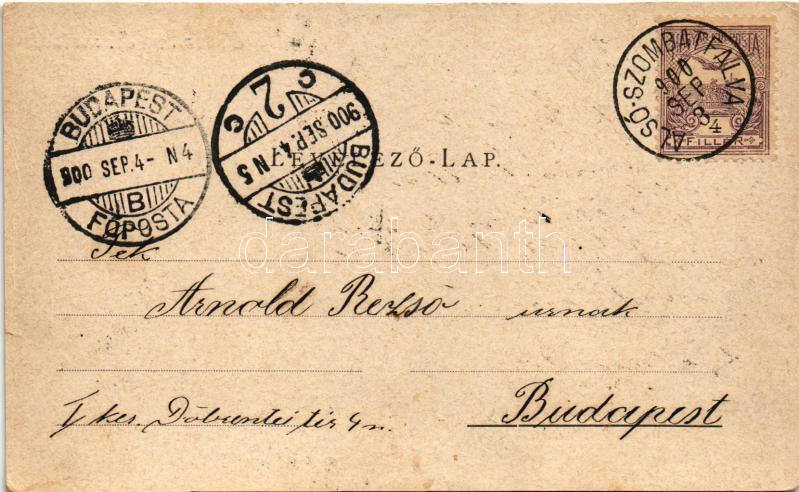 MAGYAR KIR. POSTA
4
FILLER
ALSÓ-SZOMBATFALVA
900
SEP
3
BUDAPEST
900 SEP. 4 - N 4
B
FŐPOSTA
2
C C
900 SEP. 4 N 5
BUDAPEST
LEVELEZŐ-LAP.
darabanth
Tek
Arnold Rezső urnak
Budapest
I ker. Döbrentei tér 4 n.